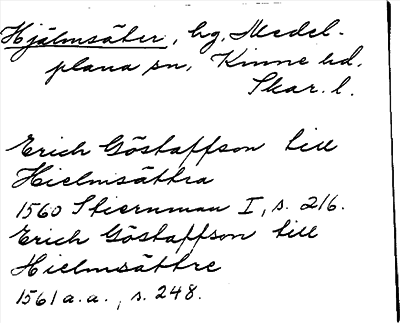 Hjälmsäter, hg, Medel-
plana sn, Kinne hd.
Skar. l.
Erich Göstaffson till
Hielmsättra
1560 Stiernman I, s. 216.
Erich Göstaffson till
Hielmsättre
1561 a.a., s. 248.